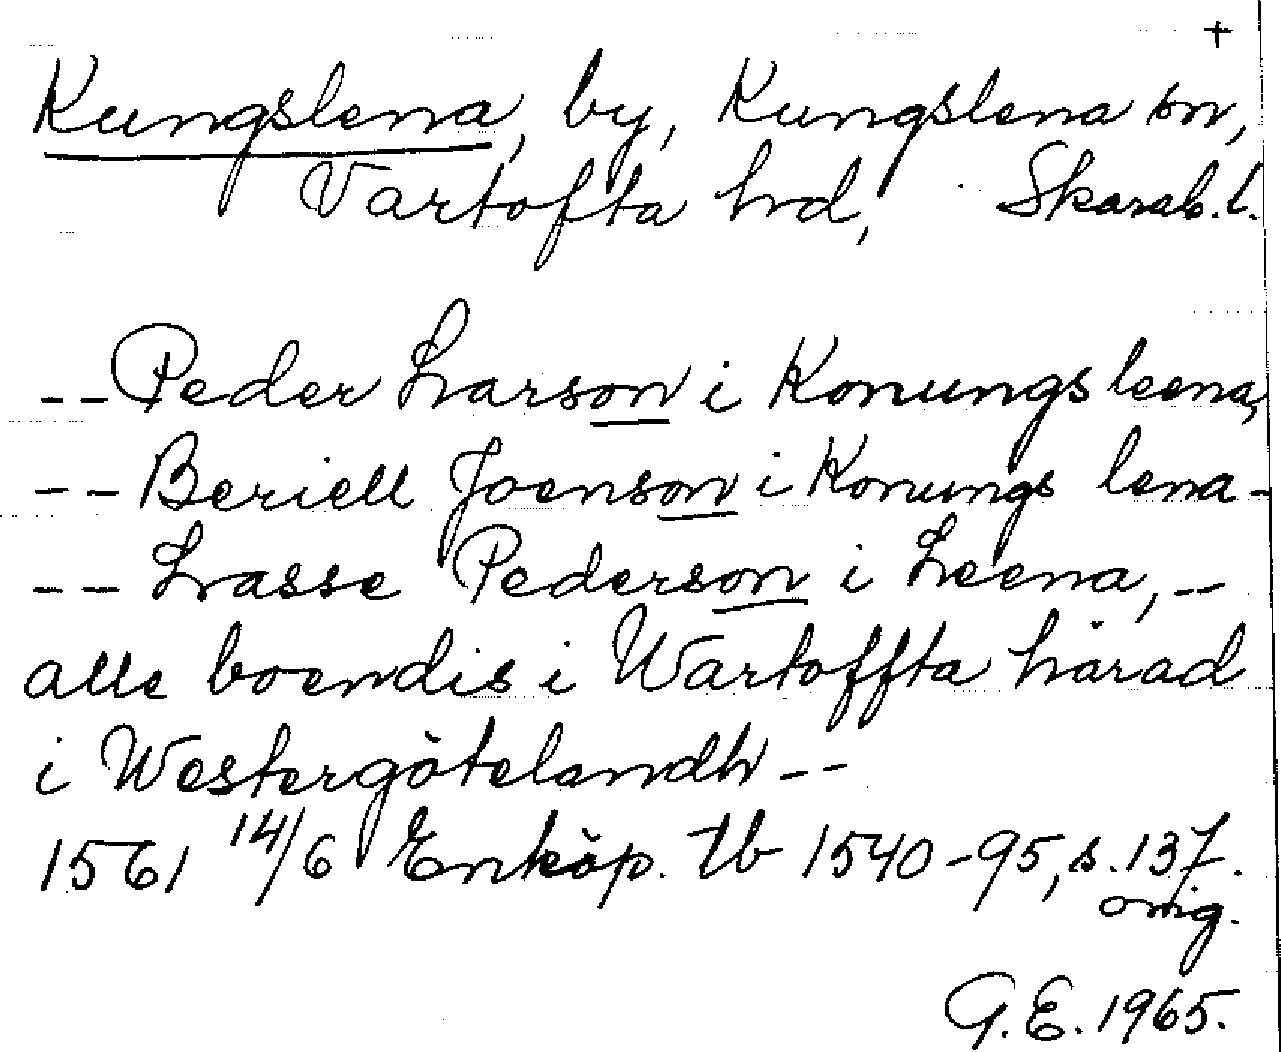 +
Kungslena, by, Kungslena sn,
Vartofta hrd, Skarab. l.
-- Peder Larson i Konungs leena,
-- Beriell Joenson i Konungs lena -
-- Lasse Pederson i Leena, --
alle boendis i Wartoffta härad
i Westergötelandh --
1561 14/6 Enköp. tb 1540-95, s. 137.
orig.
G. E. 1965.